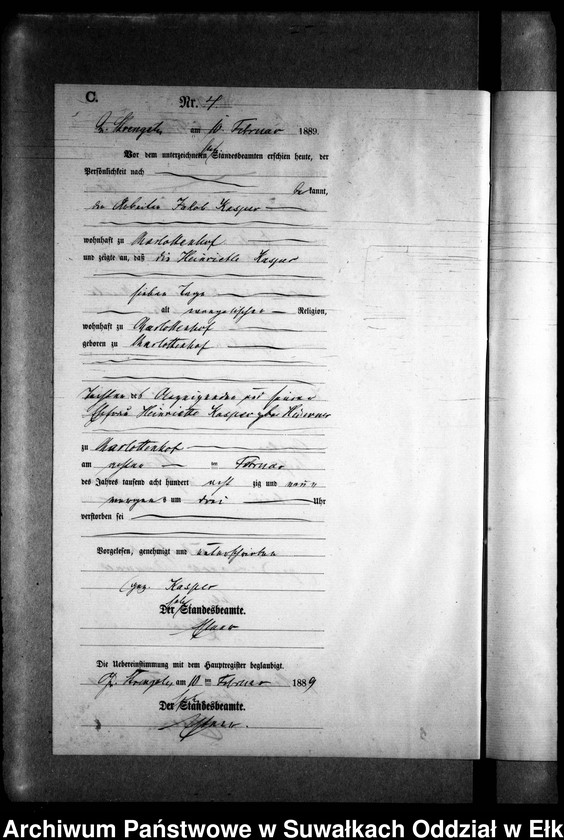 C.
Nr. 4
Gr. Strengeln am 10. Februar 1889.
Vor dem unterzeichneten Standesbeamten erschien heute, der
Persönlichkeit nach
be kannt,
der Arbeiter Jakob Kasper
wohnhaft zu Charlottenhof
und zeigte an, daß die Heinriette Kasper
sieben Tage
alt evangelischer Religion,
wohnhaft zu Charlottenhof
geboren zu Charlottenhof
Tochter des Anzeigenden und seiner
Ehefrau Heinriette Kasper geb.
zu Charlottenhof
am ersten ten Februar
des Jahres tausend acht hundert acht zig und neun
morgens um drei Uhr
verstorben sei
Vorgelesen, genehmigt und unterschrieben
gez. Kasper
Der Standesbeamte.
Die Uebereinstimmung mit dem Hauptregister beglaubigt.
Gr. Strengeln am 10 ten Februar 1889
Der Standesbeamte.
Archiwum Państwowe w Suwałkach Oddział w Ełk